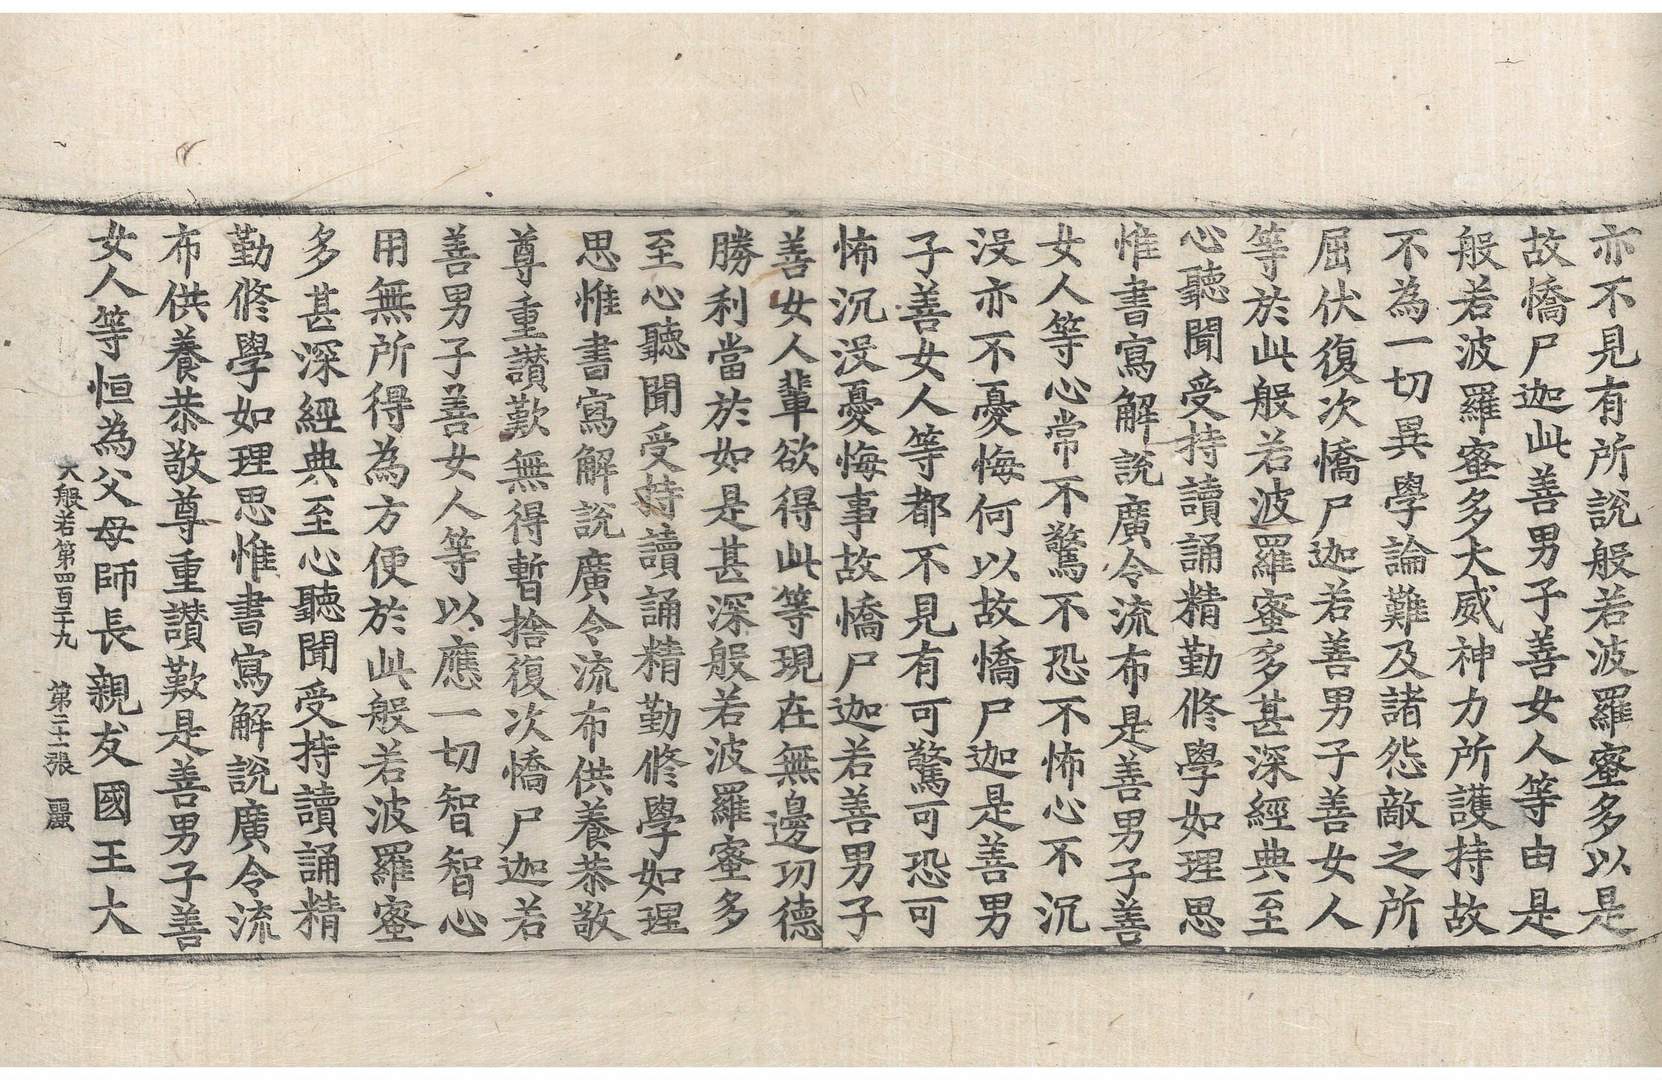 亦不見有所說般若波羅蜜多以是
故憍尸迦此善男子善女人等由是
般若波羅蜜多大威神力所護持故
不為一切異學論難及諸怨敵之所
屈伏復次憍尸迦若善男子善女人
等於此般若波羅蜜多甚深經典至
心聽聞受持讀誦精勤修學如理思
惟書寫解說廣令流布是善男子善
女人等心常不驚不恐不怖心不沉
没亦不憂悔何以故憍尸迦是善男
子善女人等都不見有可驚可恐可
怖沉没憂悔事故憍尸迦若善男子
善女人輩欲得此等現在無邊功德
勝利當於如是甚深般若波羅蜜多
至心聽聞受持讀誦精勤修學如理
思惟書寫解說廣令流布供養恭敬
尊重讚歎無得暫捨復次憍尸迦若
善男子善女人等以應一切智智心
用無所得為方便於此般若波羅蜜
多甚深經典至心聽聞受持讀誦精
勤修學如理思惟書寫解說廣令流
布供養恭敬尊重讚歎是善男子善
女人等恒為父母師長親友國王大
大般若第四百二十九 第二十一張 麗